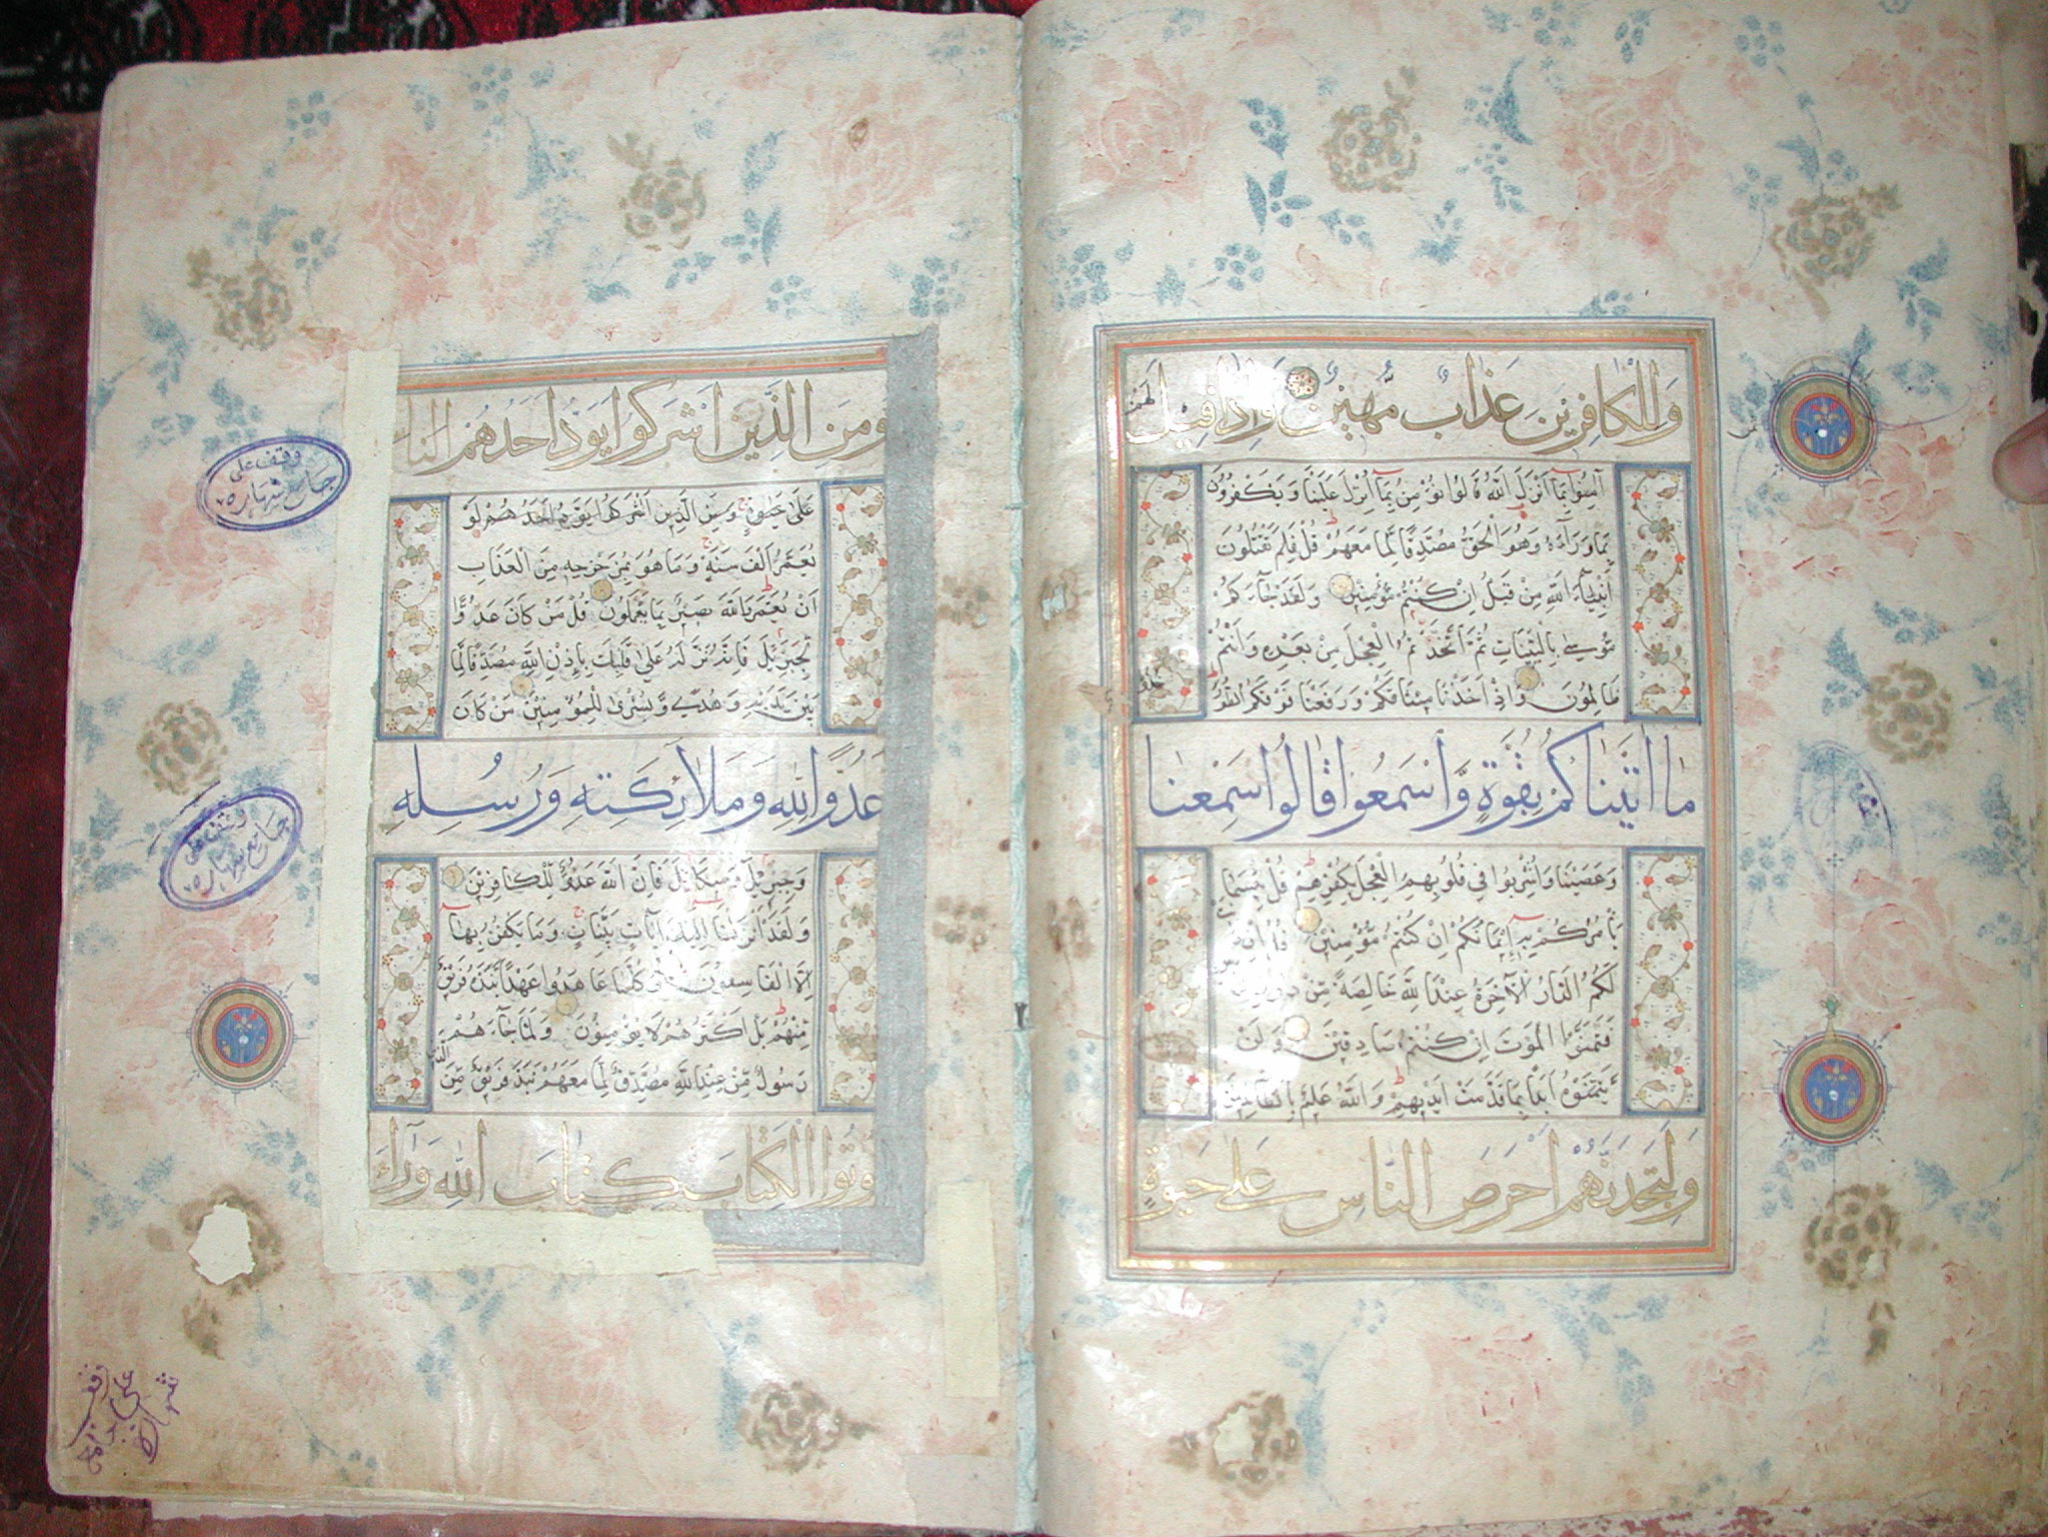 وَلِلْكَافِرِينَ عَذَابٌ مُهِينٌ وَاِذَا قِيلَ لَهُمْ
آمِنُوا بِمَا اَنْزَلَ اللهُ قَالُوا نُؤْمِنُ بِمَا اُنْزِلَ عَلَيْنَا وَيَكْفُرُونَ
بِمَا وَرَآءَهُ وَهُوَ الْحَقُّ مُصَدِّقًا لِّمَا مَعَهُمْ قُلْ فَلِمَ تَقْتُلُونَ
اَنْبِيَآءَ اللهِ مِنْ قَبْلُ اِنْ كُنْتُمْ مُؤْمِنِينَ وَلَقَدْ جَآءَكُمْ
مُوْسٰى بِالْبَيِّنَاتِ ثُمَّ اتَّخَذْتُمُ الْعِجْلَ مِنْ بَعْدِهِ وَاَنْتُمْ
ظَالِمُونَ وَاِذْ اَخَذْنَا مِيْثَاقَكُمْ وَرَفَعْنَا فَوْقَكُمُ الطُّوْرَ خُذُوا
مَا اٰتَيْنَاكُمْ بِقُوَّةٍ وَّاسْمَعُوا قَالُوا سَمِعْنَا
وَعَصَيْنَا وَاُشْرِبُوا فِي قُلُوبِهِمُ الْعِجْلَ بِكُفْرِهِمْ قُلْ بِئْسَمَا
يَأْمُرُكُمْ بِهِ اِيْمَانُكُمْ اِنْ كُنْتُمْ مُّؤْمِنِيْنَ قُلْ اِنْ كَانَتْ
لَكُمُ الدَّارُ الْاٰخِرَةُ عِنْدَ اللهِ خَالِصَةً مِّنْ دُوْنِ النَّاسِ
فَتَمَنَّوُا الْمَوْتَ اِنْ كُنْتُمْ صَادِقِيْنَ وَلَنْ
يَّتَمَنَّوْهُ اَبَدًا بِمَا قَدَّمَتْ اَيْدِيْهِمْ وَاللهُ عَلِيْمٌ بِالظَّالِمِيْنَ
وَلَتَجِدَنَّهُمْ اَحْرَصَ النَّاسِ عَلٰى حَيٰوةٍ
وَمِنَ الَّذِيْنَ اَشْرَكُوا يَوَدُّ اَحَدُهُمْ
عَلٰى حَيٰوةٍ وَمِنَ الَّذِيْنَ اَشْرَكُوا يَوَدُّ اَحَدُهُمْ لَوْ
يُعَمَّرُ اَلْفَ سَنَةٍ وَمَا هُوَ بِمُزَحْزِحِهِ مِنَ الْعَذَابِ
اَنْ يُعَمَّرَ وَاللهُ بَصِيْرٌ بِمَا يَعْمَلُونَ قُلْ مَنْ كَانَ عَدُوًّا
لِّجِبْرِيْلَ فَاِنَّهُ نَزَّلَهُ عَلٰى قَلْبِكَ بِاِذْنِ اللهِ مُصَدِّقًا لِّمَا
بَيْنَ يَدَيْهِ وَهُدًى وَّبُشْرٰى لِلْمُؤْمِنِيْنَ مَنْ كَانَ
عَدُوًّا لِلّٰهِ وَمَلَائِكَتِهِ وَرُسُلِهِ
وَجِبْرِيْلَ وَمِيْكَائِيْلَ فَاِنَّ اللهَ عَدُوٌّ لِّلْكَافِرِيْنَ
وَلَقَدْ اَنْزَلْنَا اِلَيْكَ اٰيَاتٍ بَيِّنَاتٍ وَمَا يَكْفُرُ بِهَا
اِلَّا الْفَاسِقُوْنَ اَوَكُلَّمَا عَاهَدُوا عَهْدًا نَّبَذَهُ فَرِيْقٌ
مِّنْهُمْ بَلْ اَكْثَرُهُمْ لَا يُؤْمِنُوْنَ وَلَمَّا جَآءَهُمْ
رَسُوْلٌ مِّنْ عِنْدِ اللهِ مُصَدِّقٌ لِّمَا مَعَهُمْ نَبَذَ فَرِيْقٌ مِّنَ الَّذِيْنَ
اُوْتُوا الْكِتَابَ كِتَابَ اللهِ وَرَآءَ
وقف على
جامع شهاره
وقف على
جامع شهاره